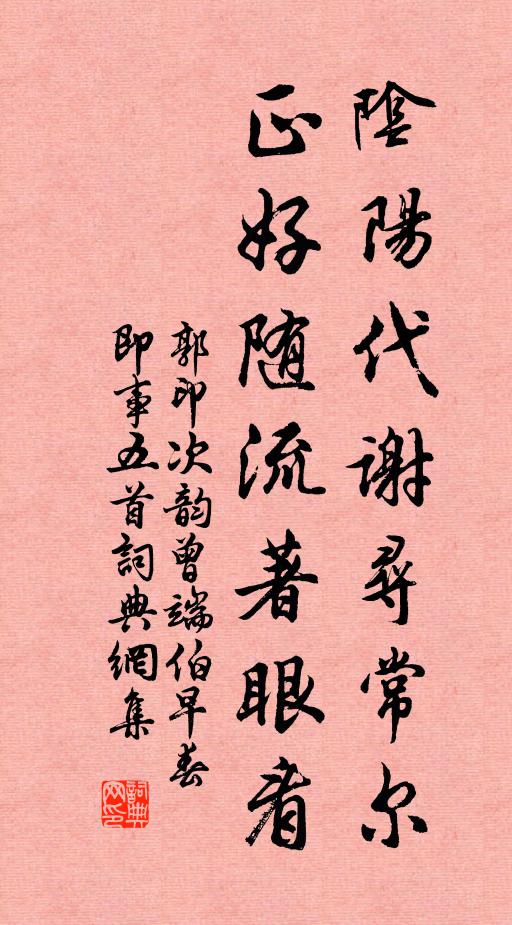 陰陽代謝尋常尔
正好随流著眼看
郭印次韵曾端伯早春
即事五首詞典網集
詞典网印